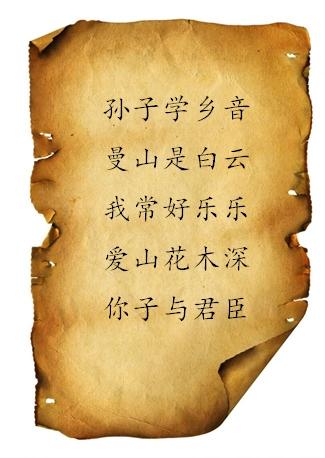 孙子学乡音
曼山是白云
我常好乐乐
爱山花木深
你子与君臣